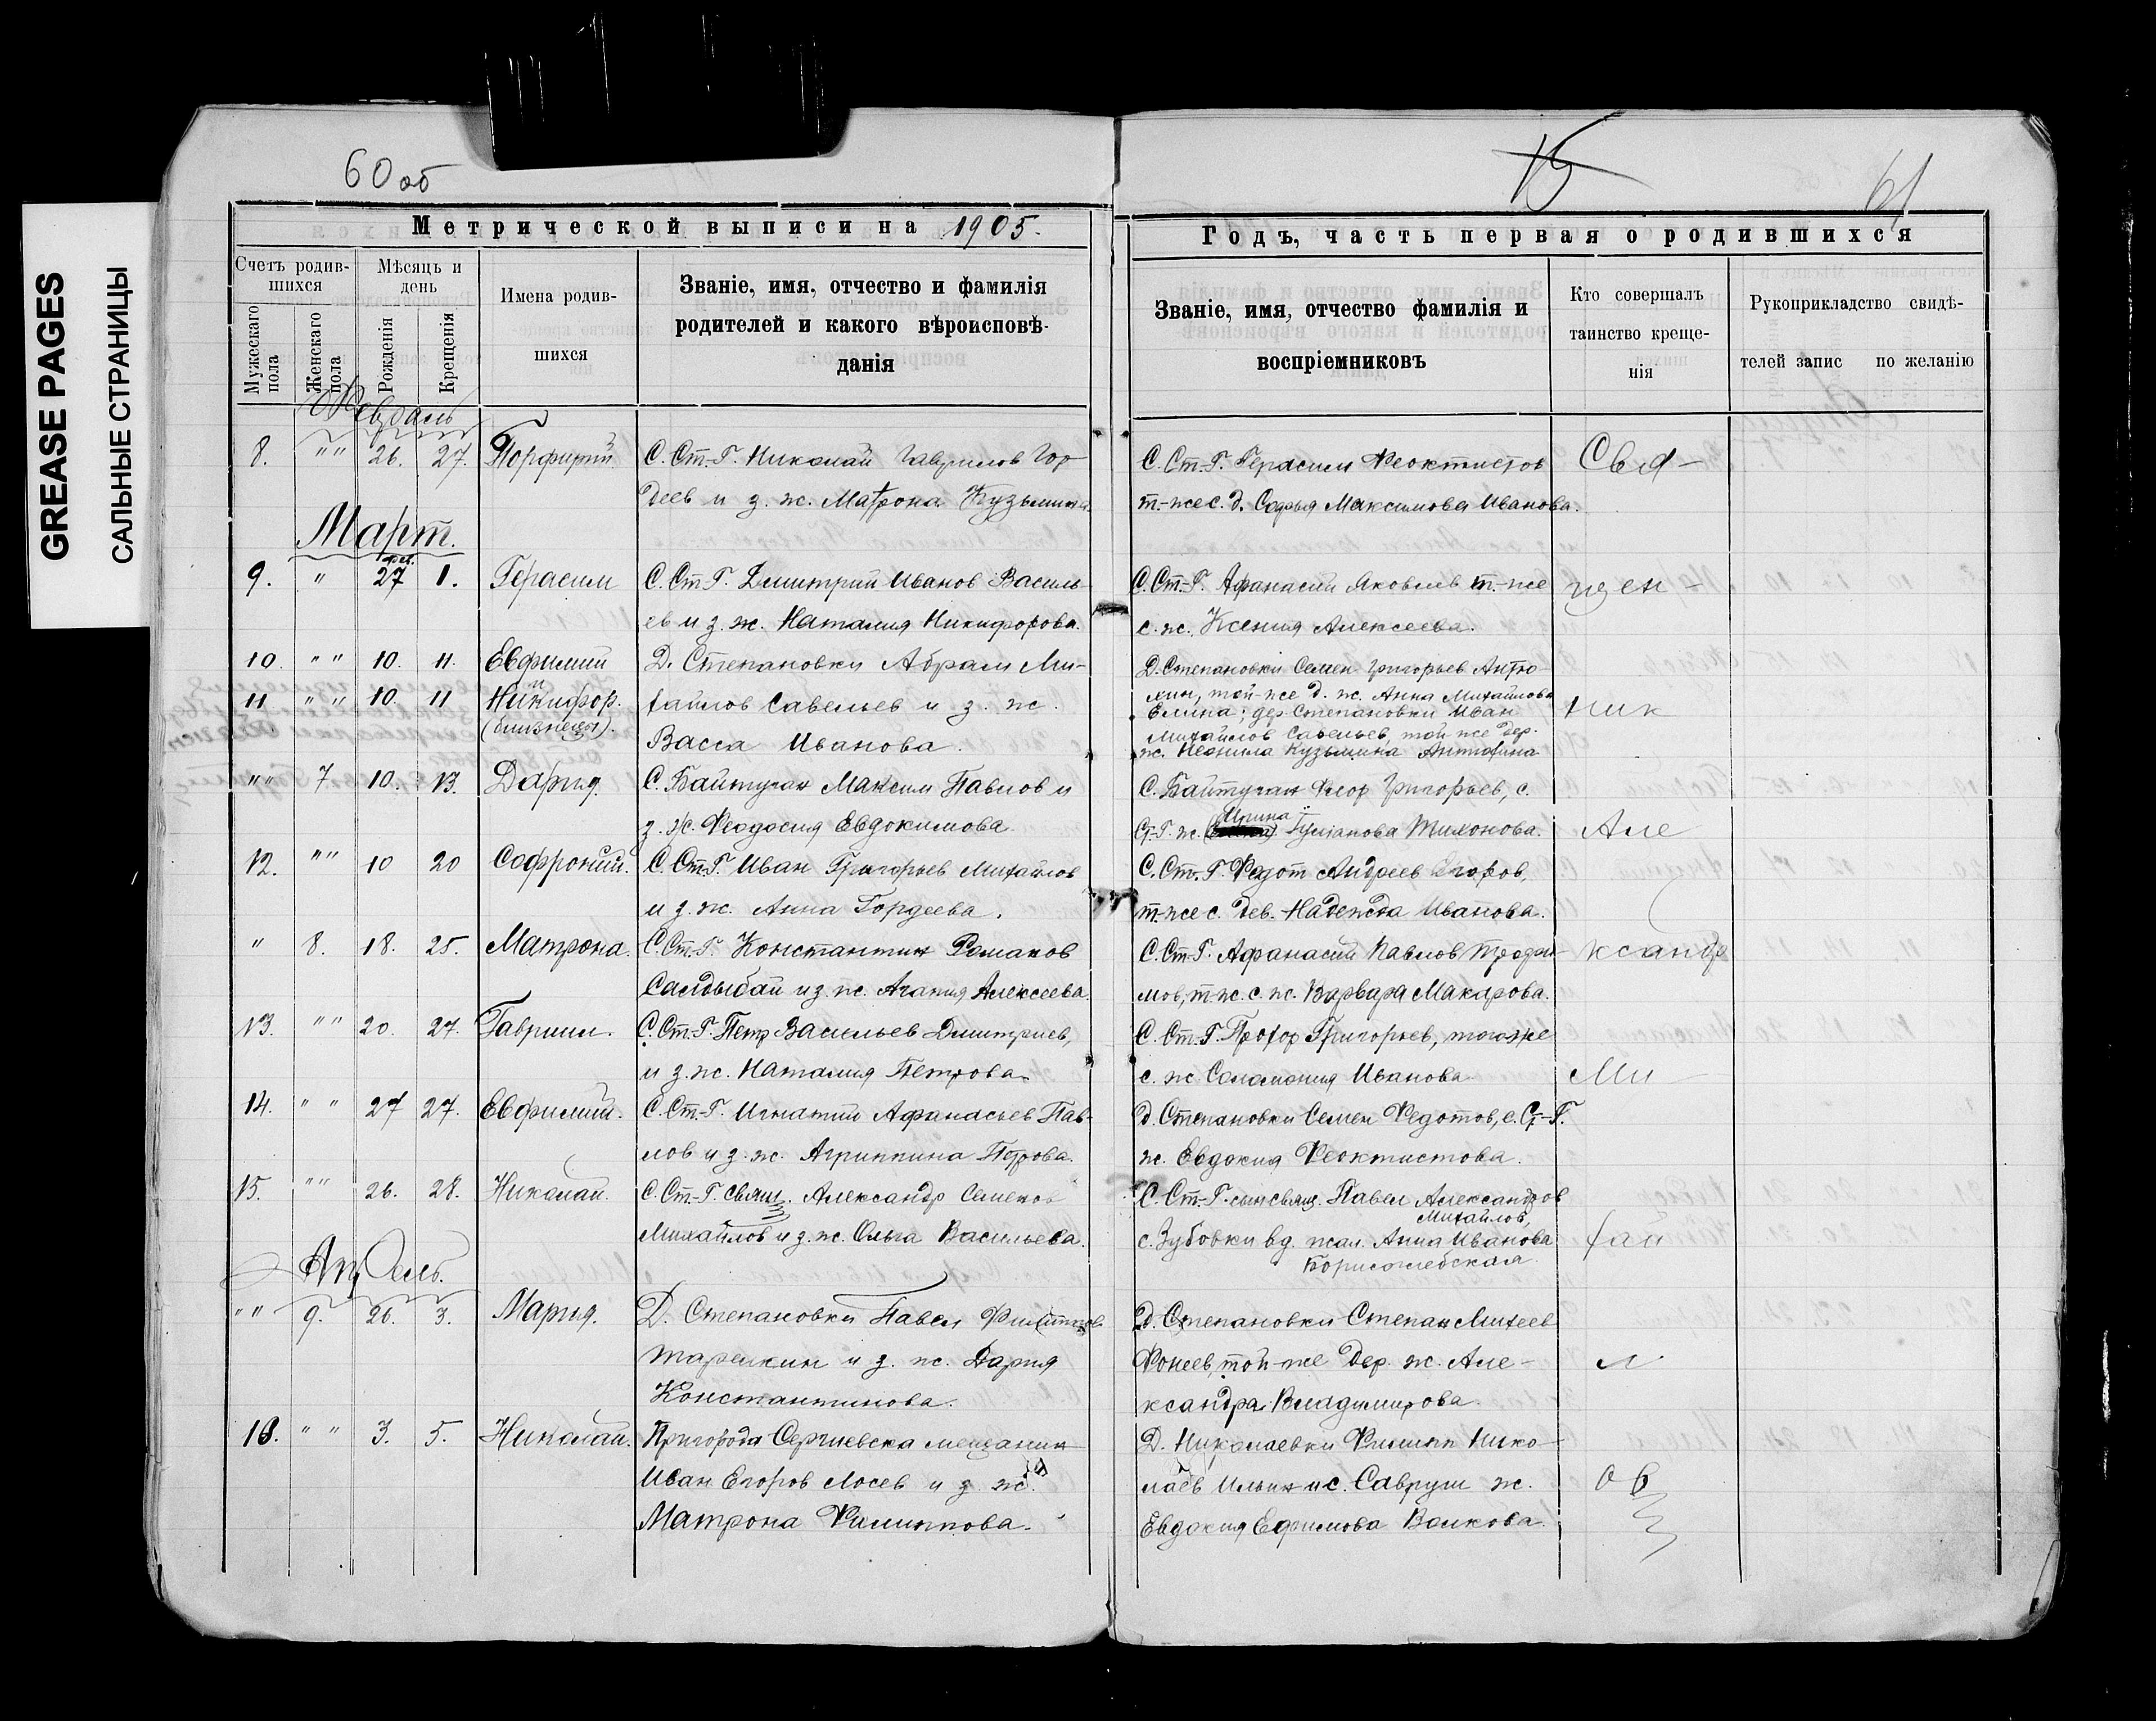 GREASE PAGES
САЛЬНЫЕ СТРАНИЦЫ
60 об
Метрической выписи на 1905.
Счетъ родив-
шихся
Мужескаго
пола
Женскаго
пола
Мѣсяцъ и
день
Рожденія
Крещенія
Имена родив-
шихся
Званіе, имя, отчество и фамилія
родителей и какого вѣроисповѣ-
данія
Февраль
8. " " 26. 27. Порфирий С. Ст.-Г. Николай Гаврилов Гор
деев и з. ж. Матрона Кузьмина
Март.
9. " фев. 27 1. Герасим С. Ст Г. Димитрий Иванов Василь-
ев и з. ж. Наталия Никифорова.
10. " " 10. 11. Евфимий Д. Степановки Абрам Ми-
и
11 " " 10. 11 Никифор. хайлов Савельев и з. ж.
(близнецы).
Васса Иванова.
" " 7. 10. 13. Дария. С. Байтуган Максим Павлов и
з. ж. Феодосия Евдокимова.
12. " " 10 20 Софроний. С. Ст.-Г. Иван Григорьев Михайлов
и з. ж. Анна Гордеева.
" 8. 18. 25. Матрона. С. Ст.-Г. Константин Романов
Салдыбай и з. ж. Агапия Алексеева.
13. " " 20. 27. Гавриил. С. Ст.-Г. Петр Васильев Димитриев,
и з. ж. Наталия Петрова.
14. " " 27 27. Евфимий. С. Ст.-Г. Игнатий Афанасьев Пав-
лов и з. ж. Агриппина Петрова.
15. " " 26. 28. Николай. С. Ст.-Г. свящ. Александр Семенов
Михайлов и з. ж. Ольга Васильева.
Апрель.
" " 9. 26. 3. Мария. Д. Степановки Павел
Тарелкин и з. ж. Дария
Константинова.
16. " " 3. 5. Николай. Пригорода Сергиевска мещанин
Иван Егоров Лосев и з. ж.
Матрона Филиппова.
15
61
Годъ, часть первая о родившихся
Званіе, имя, отчество фамилія и
воспріемниковъ
Кто совершалъ
таинство креще-
нія
Рукоприкладство свидѣ-
телей запис по желанію
С. Ст.-Г. Герасим Феоктистов Свя-
т.-же с. д. Софья Максимова Иванова.
С. Ст.-Г. Афанасий Яковлев т.-же щен-
с. ж. Ксения Алексеева.
Д. Степановки Семен Григорьев Антю-
хин, той-же д. ж. Анна Михайлова
Елина; дер. Степановки Иван ник
Михайлов Савельев, той же дер.
ж. Неонила Кузьмина Антюфина
С. Байтуган Феор Григорьев, с.
Ирина
Ст.-Г. ж. Гулианова Тихонова. Але
С. Ст.-Г. Федот Андреев Егоров,
т.-же с. дев. Надежда Иванова.
С. Ст.-Г. Афанасий Павлов Трофи- ксандр
мов, т-ж. с. ж. Варвара Макарова.
С. Ст.-Г. Прохор Григорьев, тогоже
с. ж. Соломония Иванова. Ми
д. Степановки Семен Федотов, с. Ст-Г.
ж. Евдокия Феоктистова.
С. Ст.-Г. сын свящ. Павел Александров
Михайлов,
с. Зубовки вд. псал. Анна Иванова хай
Борисоглебская
Д. Степановки Степан Михеев
Фонеев, той-же дер. ж. Але- л
ксандра Владимирова.
Д. Николаевки Филипп Нико-
лаев Ильин и с. Савруш ж. ов
Евдокия Ефимова Волкова.